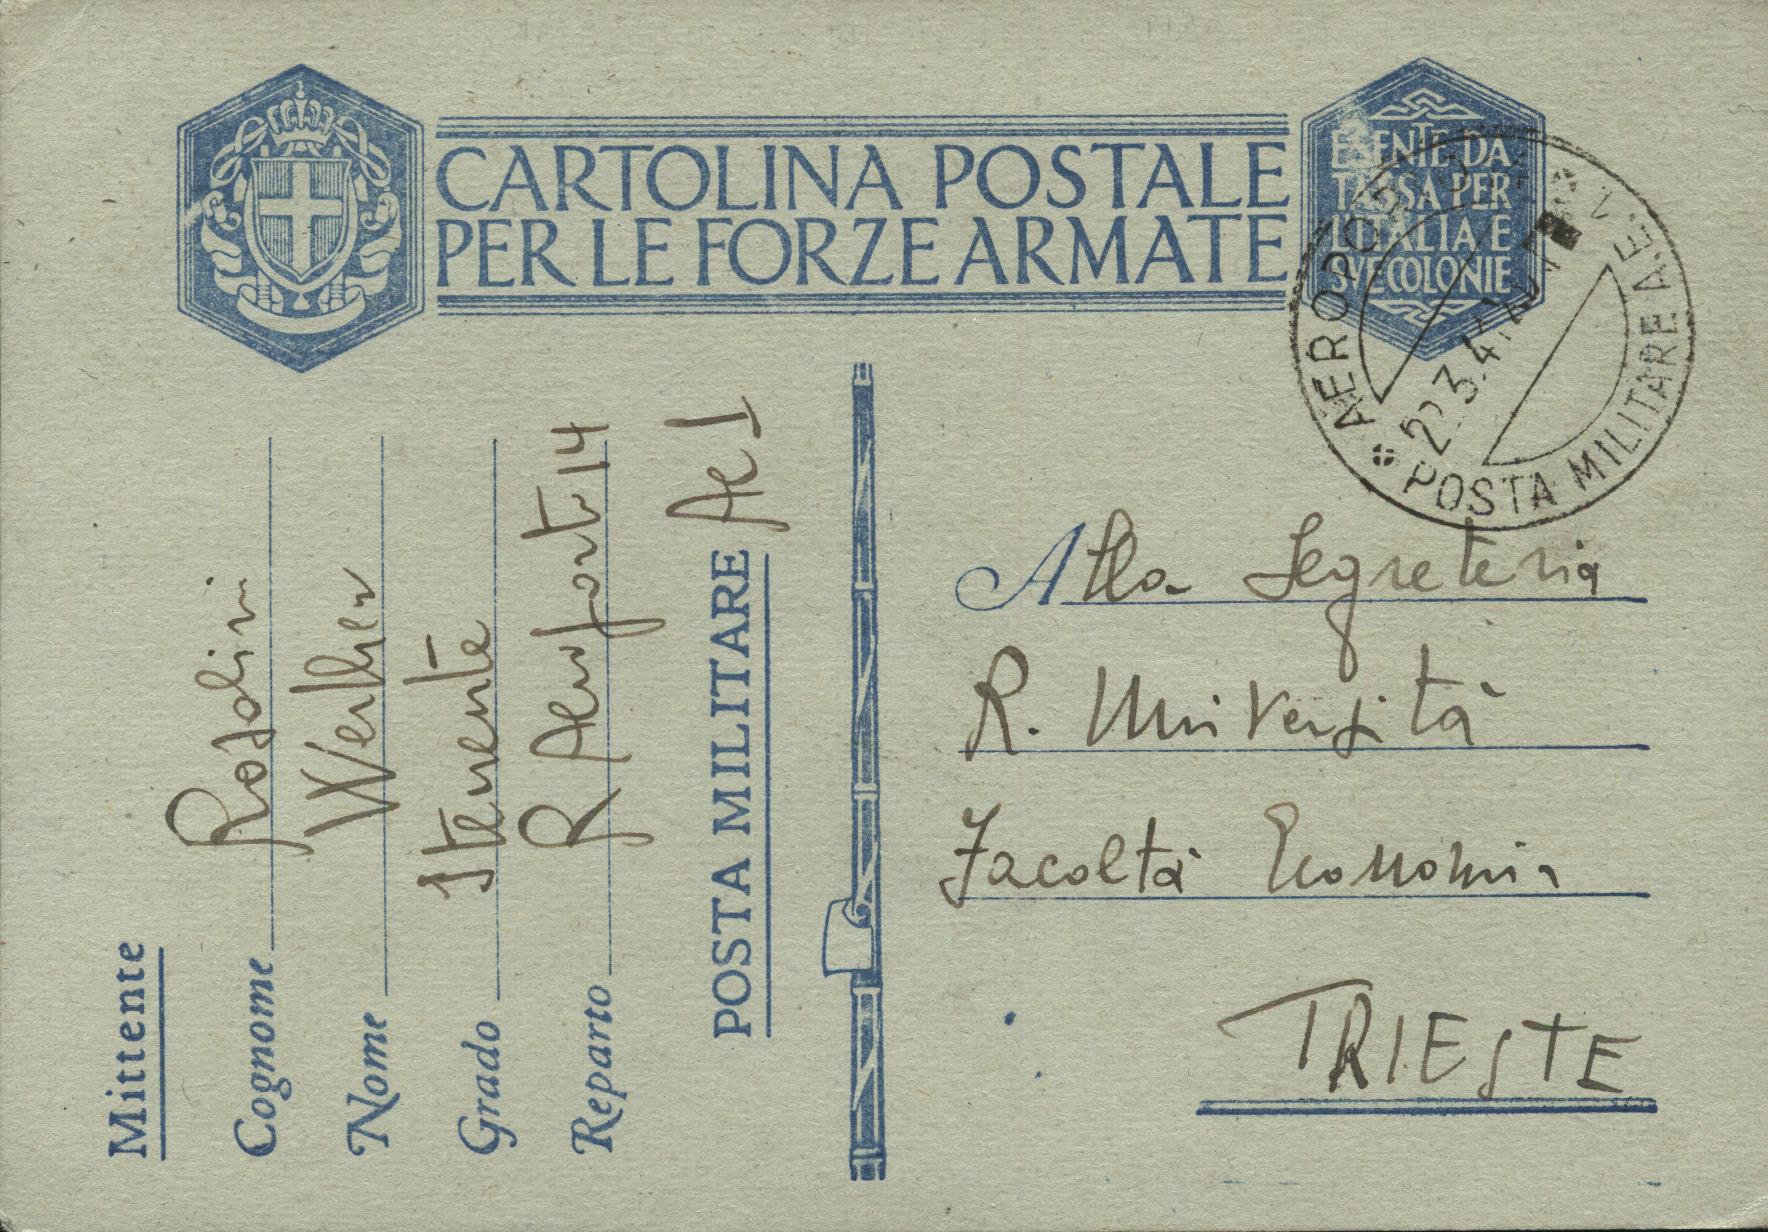 CARTOLINA POSTALE
PER LE FORZE ARMATE
ESENTE DA
TASSA PER
L'ITALIA E
SVE COLONIE
AEROPORTO
22.3.41
POSTA MILITARE AE. 1
Mittente
Cognome Rosolini
Nome Walther
Grado Stenente
Reparto R Aeroporto 14
POSTA MILITARE Ae 1
Alla Segreteria
R. Università
Facoltà Economia
TRIESTE